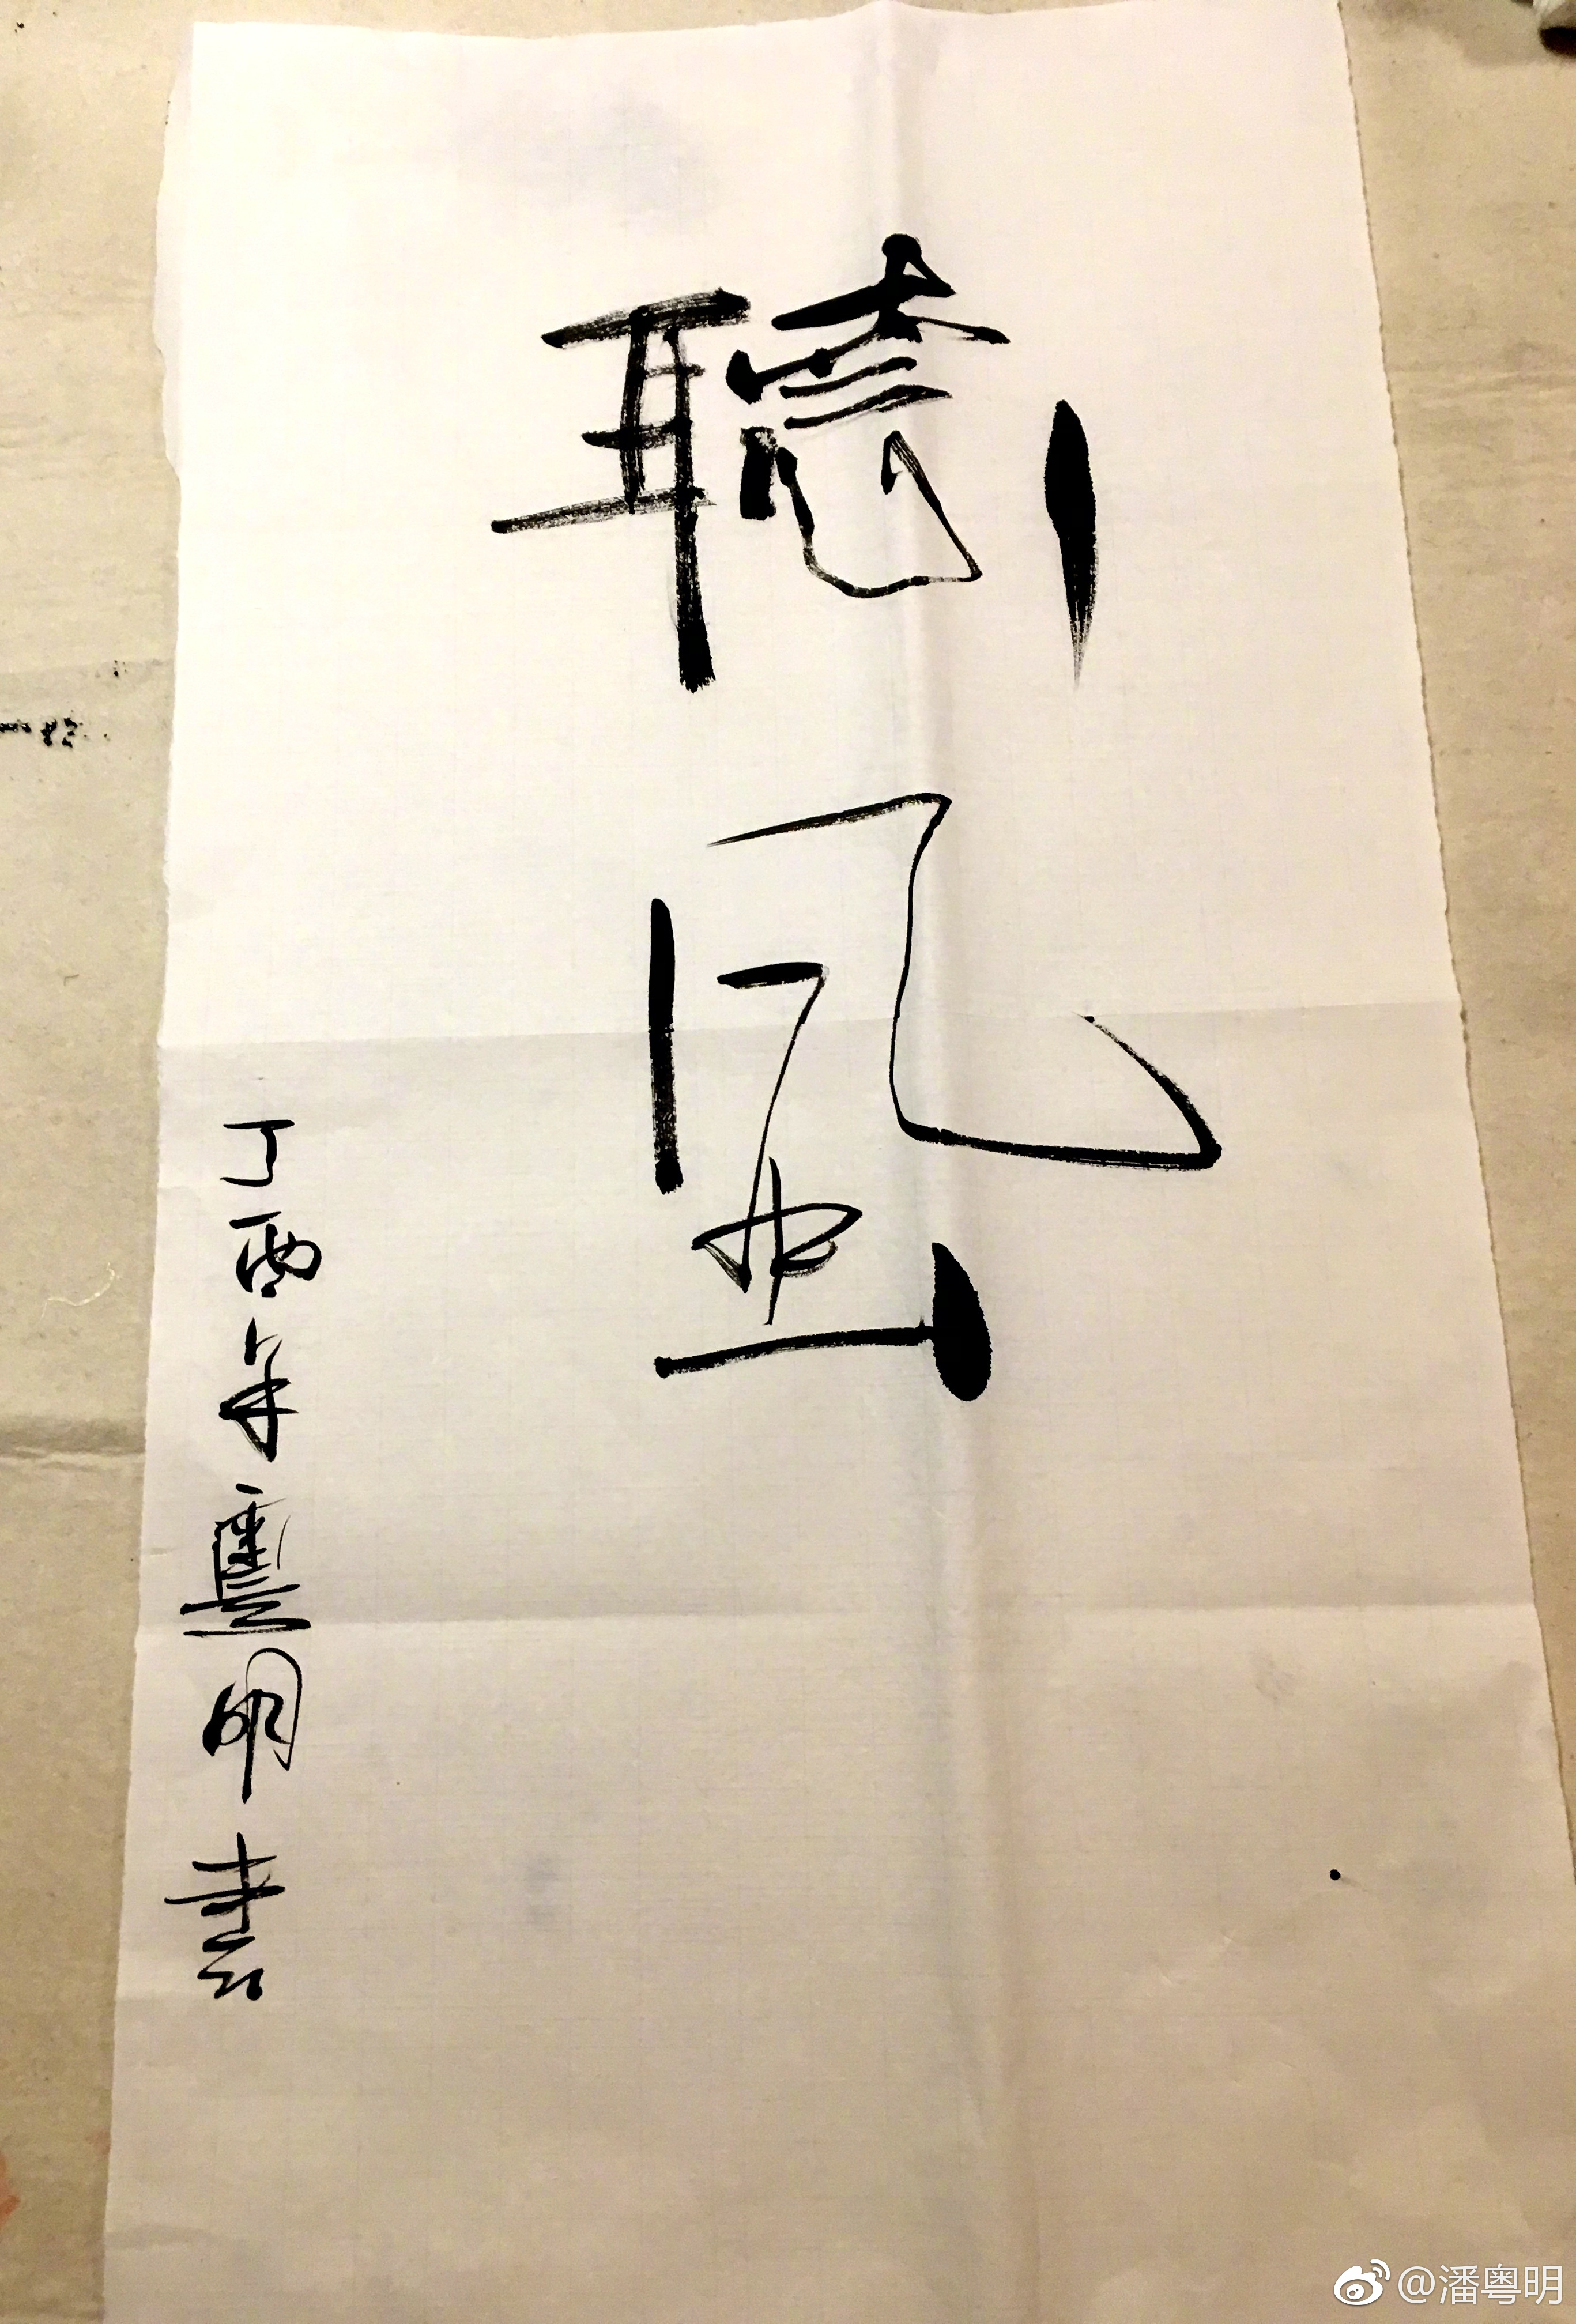 聽風
丁酉年粤明書
@潘粤明